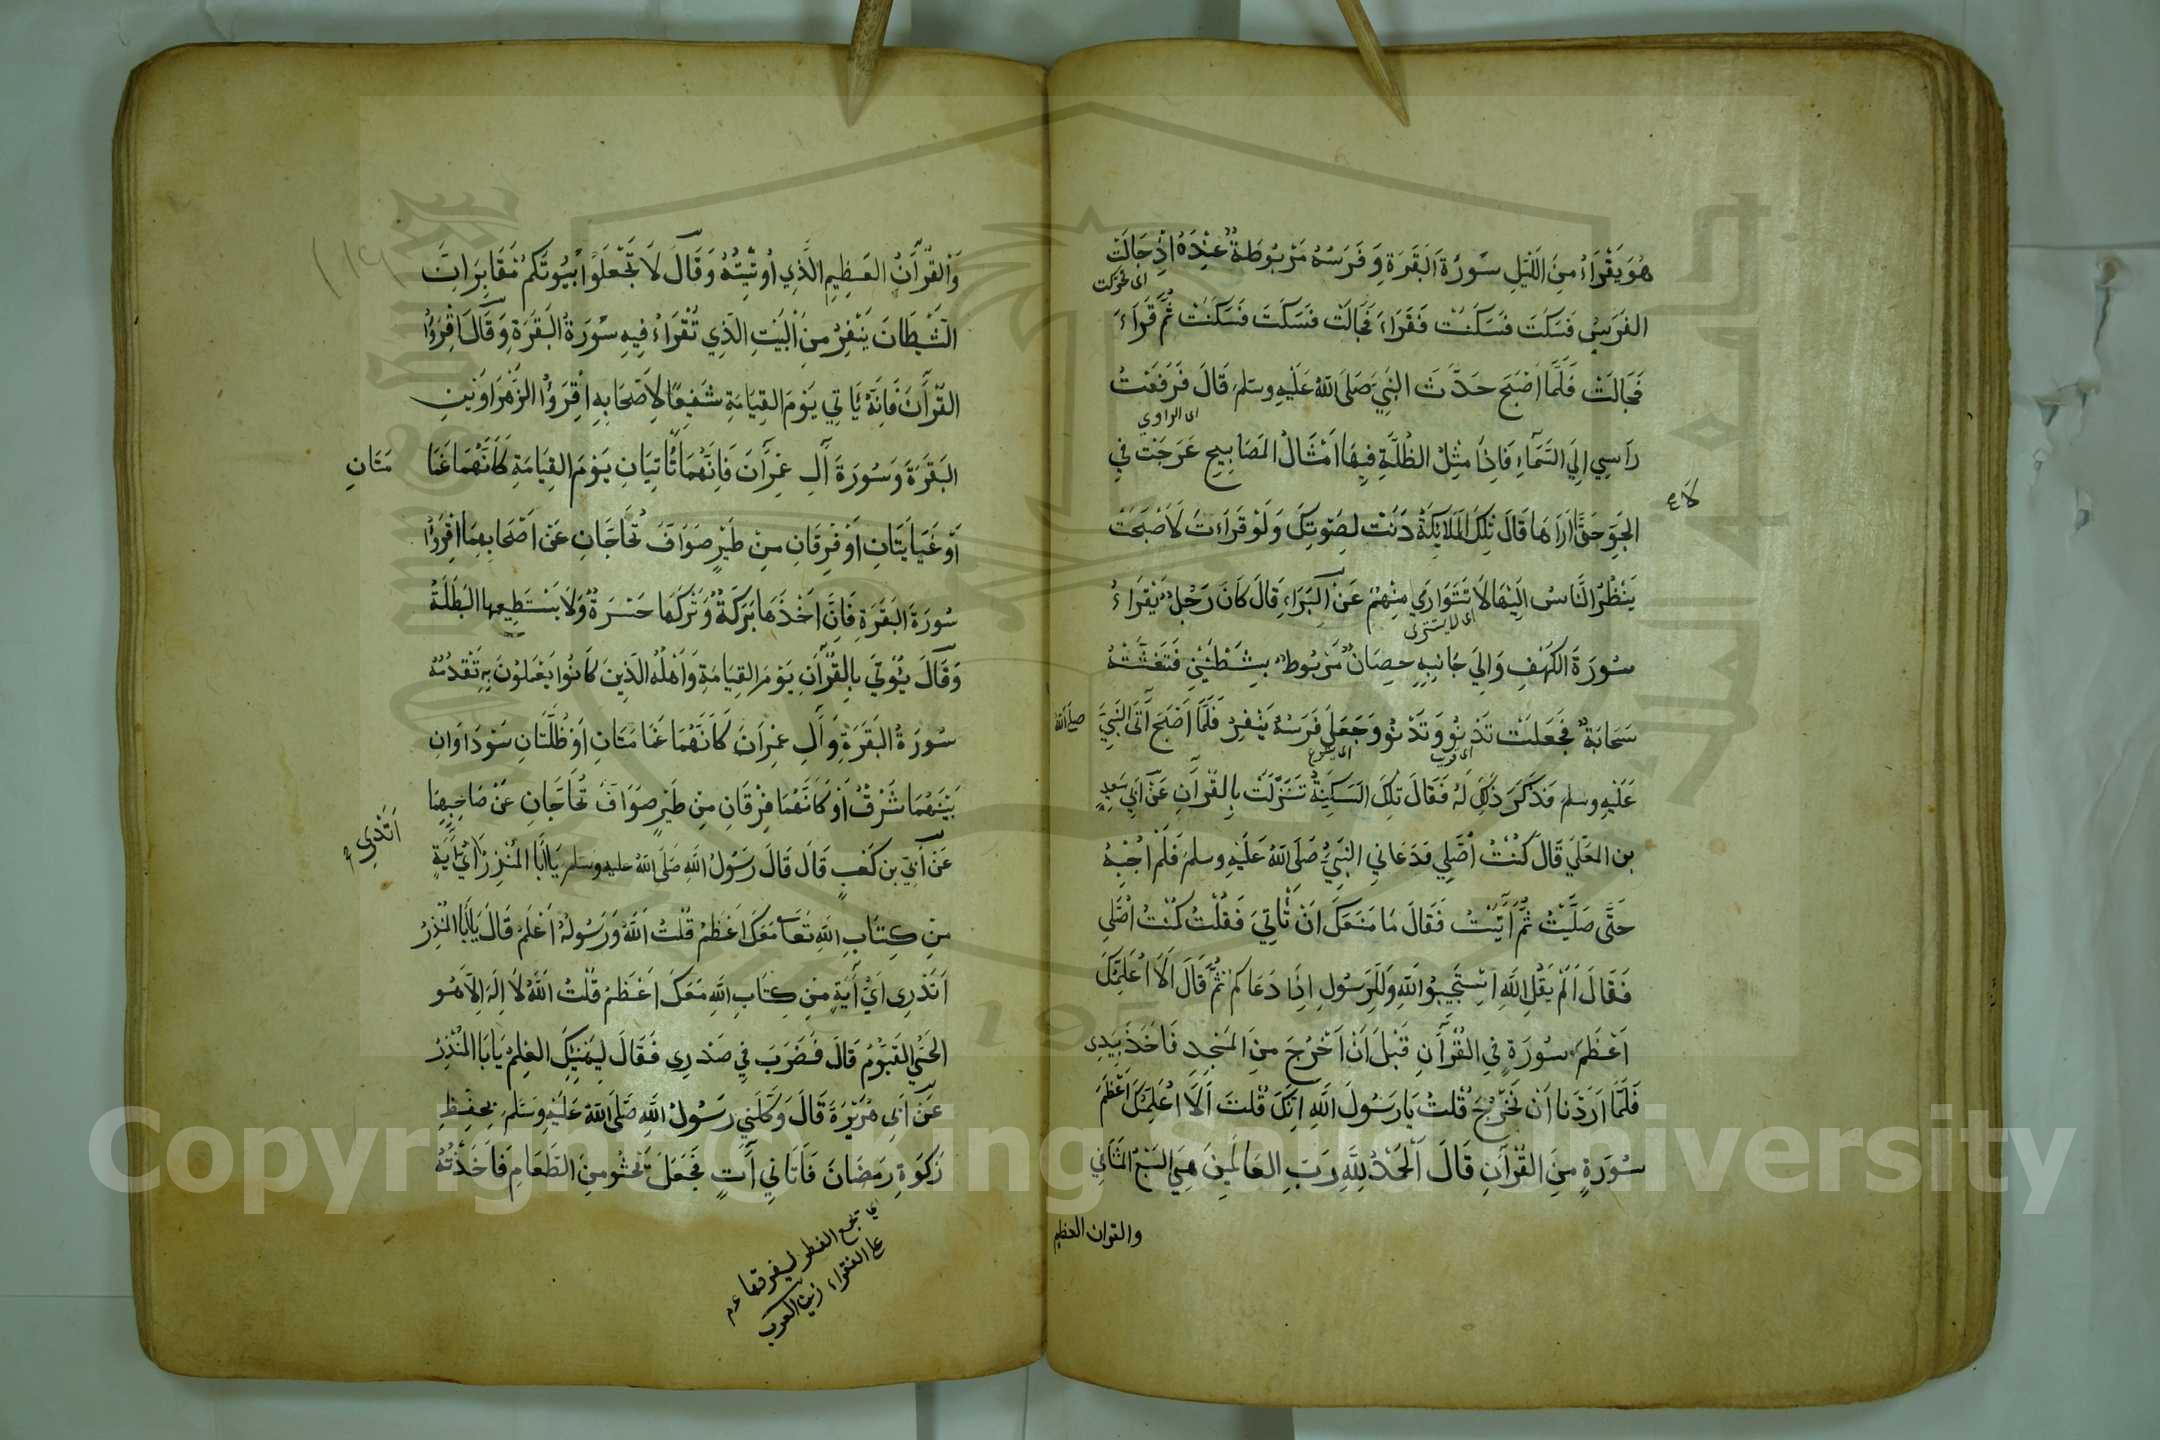 هُوَ يَقْرَاءُ مِنَ اللَّيْلِ سُورَةَ البَقَرَةِ وَفَرَسُهُ مَرْبُوطَةٌ عِنْدَهُ اِذْ جَالَتْ
اى تحركت
الفَرَسُ فَسَكَتَ فَسَكَنَتْ فَقَرَاءَ فَجَالَتْ فَسَكَتَ فَسَكَنَتْ ثُمَّ قَرَاءَ
فَجَالَتْ فَلَمَّا اَصْبَحَ حَدَّثَ النَّبِيَّ صَلَّى اللَّهُ عَلَيْهِ وسَلم قَالَ فَرَفَعْتُ
اى الراوي
رَاسِي اِلَى السَّمَاءِ فَاِذَا مِثْلُ الظُّلَّةِ فِيهَا اَمْثَالُ المَصَابِيحِ عَرَجَتْ فِي
الجَوِّ حَتَّى اَرَاهَا قَالَ تِلْكَ المَلَائِكَةُ دَنَتْ لِصَوْتِكَ وَلَوْ قَرَاءَتَ لَاَصْبَحَتْ
لا ع
يَنْظُرُ النَّاسُ اِلَيْهَا لَا تَتَوَارَي مِنْهُمْ عَنْ البَرَاءِ قَالَ كَانَ رَجُلٌ يَقْرَاءُ
اى لا يستتر
سُورَةَ الكَهْفِ وَاِلَي جَانِبِهِ حِصَانٌ مَرْبُوطٌ بِشَطَنَيْنِ فَتَغَشَّتْهُ
سَحَابَةٌ فَجَعَلَتْ تَدْنُو وَتَدْنُو وَجَعَلَ فَرَسُهُ يَنْفِرُ فَلَمَّا اَصْبَحَ اَتَى النَّبِيَّ صلى الله
عَلَيْهِ وسلم فَذَكَرَ ذَلِكَ لَهُ فَقَالَ تِلْكَ السَّكِينَةُ تَنَزَّلَتْ بِالقُرْآنِ عَنْ اَبِي سَعِيدٍ
بن المعَلَّي قَالَ كُنْتُ اُصَلِّي فَدَعَانِي النَّبِيُّ صَلَّى اللَّهُ عَلَيْهِ وسلم فَلَمْ اُجِبْهُ
حَتَّى صَلَّيْتُ ثُمَّ اَتَيْتُ فَقَالَ مَا مَنَعَكَ اَنْ تَاْتِيَ فَقُلْتُ كُنْتُ اُصَلِّي
فَقَالَ اَلَمْ يَقُلِ اللَّهُ اسْتَجِيبُوا لِلَّهِ وَلِلرَّسُولِ اِذَا دَعَاكُمْ ثُمَّ قَالَ اَلَا اُعَلِّمُكَ
اَعْظَمَ سُورَةٍ فِي القُرْآنِ قَبْلَ اَنْ اَخْرُجَ مِنَ المَسْجِدِ فَاَخَذَ بِيَدِى
فَلَمَّا اَرَدْنَا اَنْ نَخْرُجَ قُلْتُ يَا رَسُولَ اللَّهِ اِنَّكَ قُلْتَ اَلَا اُعَلِّمُكَ اَعْظَمَ
سُورَةٍ مِنَ القُرْآنِ قَالَ اَلْحَمْدُ لِلَّهِ رَبِّ العَالَمِينَ هِيَ السَّبْعُ المَثَانِي
والقران العظيم
وَالْقُرْآنُ العَظِيمِ الَّذِي اُوتِيتُهُ وَقَالَ لَا تَجْعَلُوا بُيُوتَكُمْ مَقَابِرَ اِنَّ
الشَّيْطَانَ يَنْفِرُ مِنَ الْبَيْتِ الَّذِي تُقْرَاءُ فِيهِ سُورَةُ البَقَرَةِ وَقَالَ اِقْرَؤُا
القُرْآنَ فَاِنَّهُ يَاتِي يَوْمَ القِيَامَةِ شَفِيعًا لِاَصْحَابِهِ اِقْرَؤُا الزَّهْرَاوَيْنِ
البَقَرَةَ وَسُورَةَ آلِ عِمْرَانَ فَاِنَّهُمَا تَاْتِيَانِ يَوْمَ القِيَامَةِ كَاَنَّهُمَا غَمَا مَتَانِ
اَوْ غَيَايَتَانِ اَوْ فِرْقَانِ مِنْ طَيْرٍ صَوَافَّ تُحَاجَّانِ عَنْ اَصْحَابِهِمَا اقْرَؤُا
سُورَةَ البَقَرَةِ فَاِنَّ اَخْذَهَا بَرَكَةٌ وَتَرْكَهَا حَسْرَةٌ وَلَا يَسْتَطِيعهَا البَطَلَةُ
وَقَالَ يُؤْتَي بِالقُرْآنِ يَوْمَ القِيَامَةِ وَاَهْلُهُ الَّذِينَ كَانُوا يَعْمَلُونَ بِهِ تَقْدُمُهُ
سُورَةُ البَقَرَةِ وَآلِ عِمْرَانَ كَاَنَّهُمَا غَمَامَتَانِ اَوْ ظُلَّتَانِ سَوْدَاوَانِ
بَيْنَهُمَا شَرْقٌ اَوْ كَاَنَّهُمَا فِرْقَانِ مِنْ طَيْرٍ صَوَافَّ تُحَاجَّانِ عَنْ صَاحِبِهِمَا
عَنْ اُبَيِّ بن كَعْبٍ قَالَ قَالَ رَسُولُ اللَّهِ صَلَّى اللَّهُ عليه وسلم يَا اَبَا المُنْذِرِ اَيُّ آيَةٍ
اَتَدْرِى
مِنْ كِتَابِ اللَّهِ تَعَا مَعَكَ اَعْظَمُ قُلْتُ اَللَّهُ وَرَسُولُهُ اَعْلَمُ قَالَ يَا اَبَا المُنْذِرُ
اَتَدْرِى اَيُّ آيَةٍ مِنْ كِتَابِ اللَّهِ مَعَكَ اَعْظَمُ قُلْتُ اَللَّهُ لَا اِلَهَ اِلَّا هُوَ
الحَيُّ القَيُّومُ قَالَ فَضَرَبَ فِي صَدْرِى فَقَالَ لِيَهْنِكَ العِلْمُ يَابَا المُنْذِرُ
عَنْ اَبِى هُرَيْرَةَ قَالَ وَكَّلَنِي رَسُولُ اللَّهِ صَلَّى اللَّهُ عَلَيْهِ وَسَلَّمَ بِحِفْظِ
زَكَوةِ رَمَضَانَ فَاَتَانِي آتٍ فَجَعَلَ يَحْثُو مِنَ الطَّعَامِ فَاَخَذْتُهُ
تجمع الفطر ليفرقها
على الفقراء زين العرب
Copyright © King Saud University